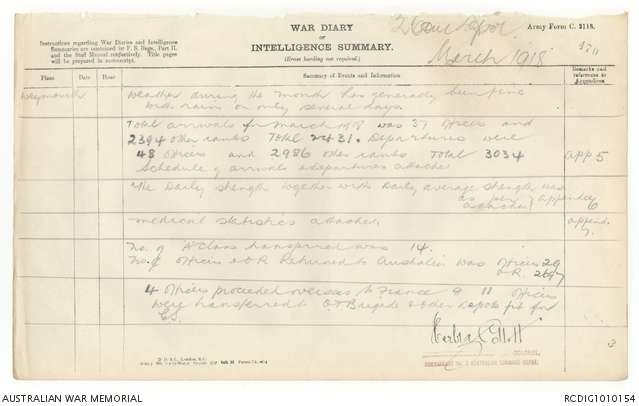 WAR DIARY
OR
INTELLIGENCE SUMMARY.
(Erase heading not required.)
Army Form C. 2118.
Instructions regarding War Diaries and Intelligence
Summaries are contained in F. S. Regs., Part II.
and the Staff Manual respectively. Title pages
will be prepared in manuscript.
2 Com Depot
March 1918
Place
Date
Hour
Summary of Events and Information
Remarks and
references to
Appendices
Weymouth
Weather during the month has generally been fine
with rain on only several days
Total arrivals for March 1918 was 37 officers and
2394 other ranks Total 2431. Departures were
48 officers and 2986 other ranks Total 3034
Schedule of arrivals & departures attached
app 5
The Daily strength together with Daily average strength was
as per appendix
attached
6
Medical statistics attached.
append.
7.
No. of A class transferred was 14.
No. of officers & OR Returned to Australia was officers 29
OR 2697
4 officers proceeded overseas to France & 11 officers
were transferred to O.T Brigade & other depots fit for
COLONEL,
COMMANDANT No. 2 AUSTRALIAN COMMAND DEPOT.
AUSTRALIAN WAR MEMORIAL
RCDIG1010154